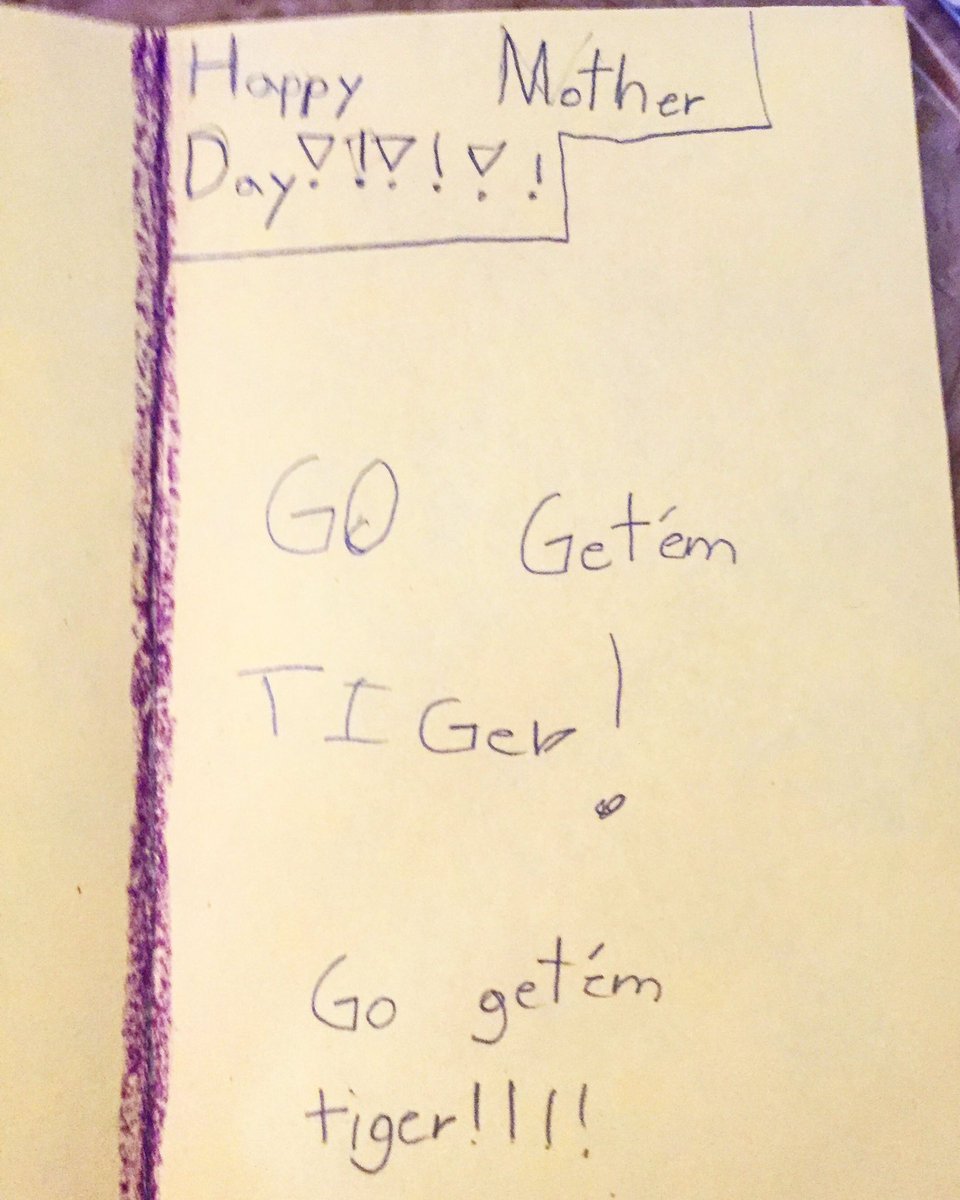 Happy Mother
Day!!!!!!!
GO Get'em
TIGer!
Go get'em
tiger!!!!